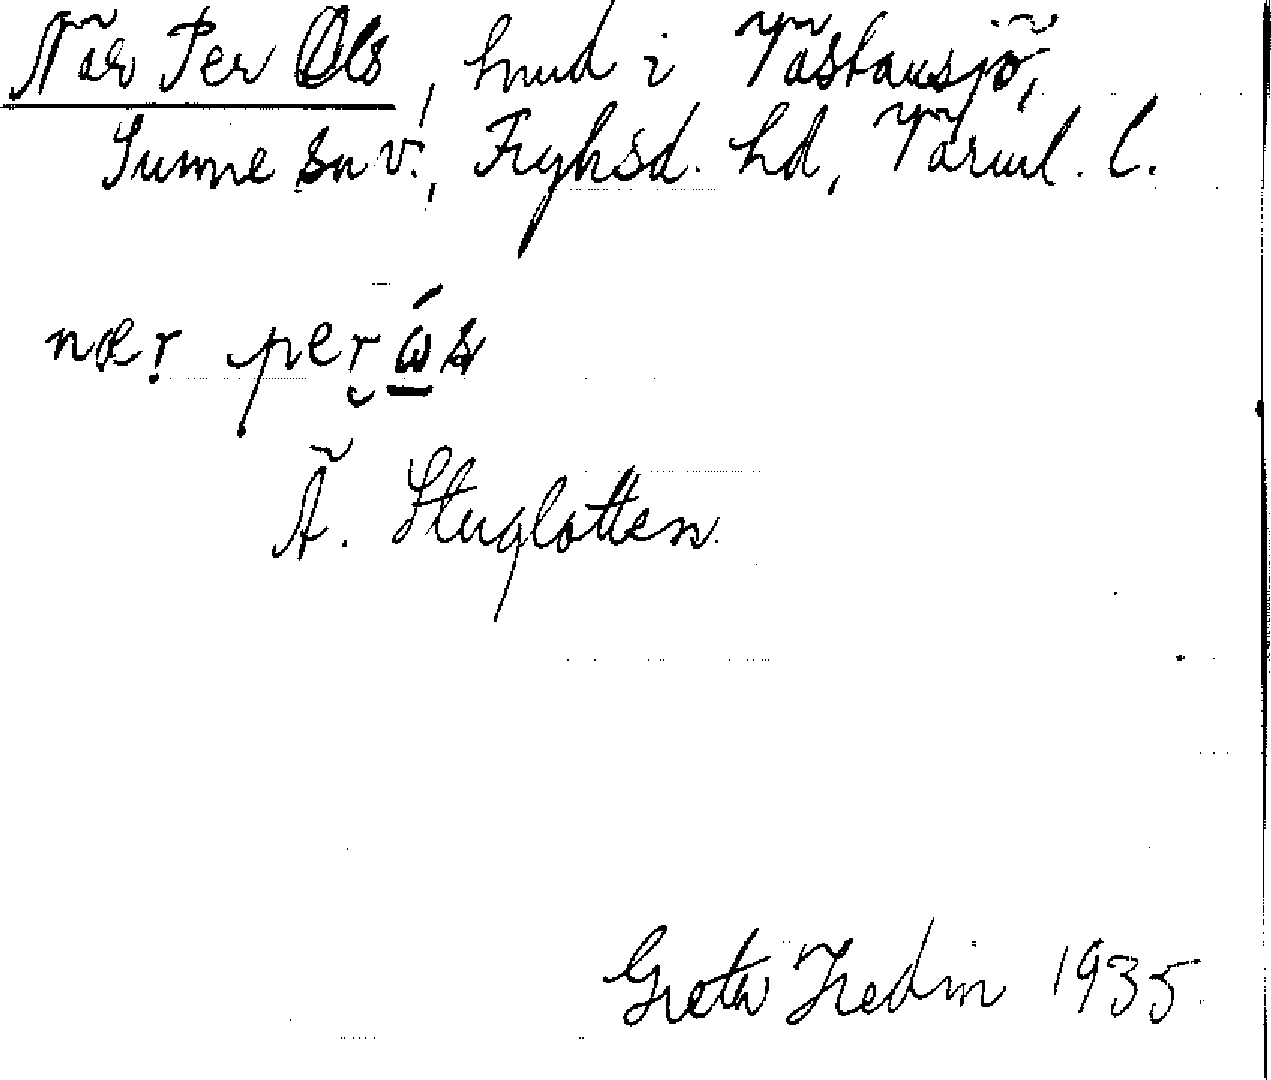 När Per Ols, hmd i Västansjö,
Sunne sn v., Fryksd. hd, Värml. l.
nær per ώs
Ä. Stuglotten.
Greta Hedin 1935